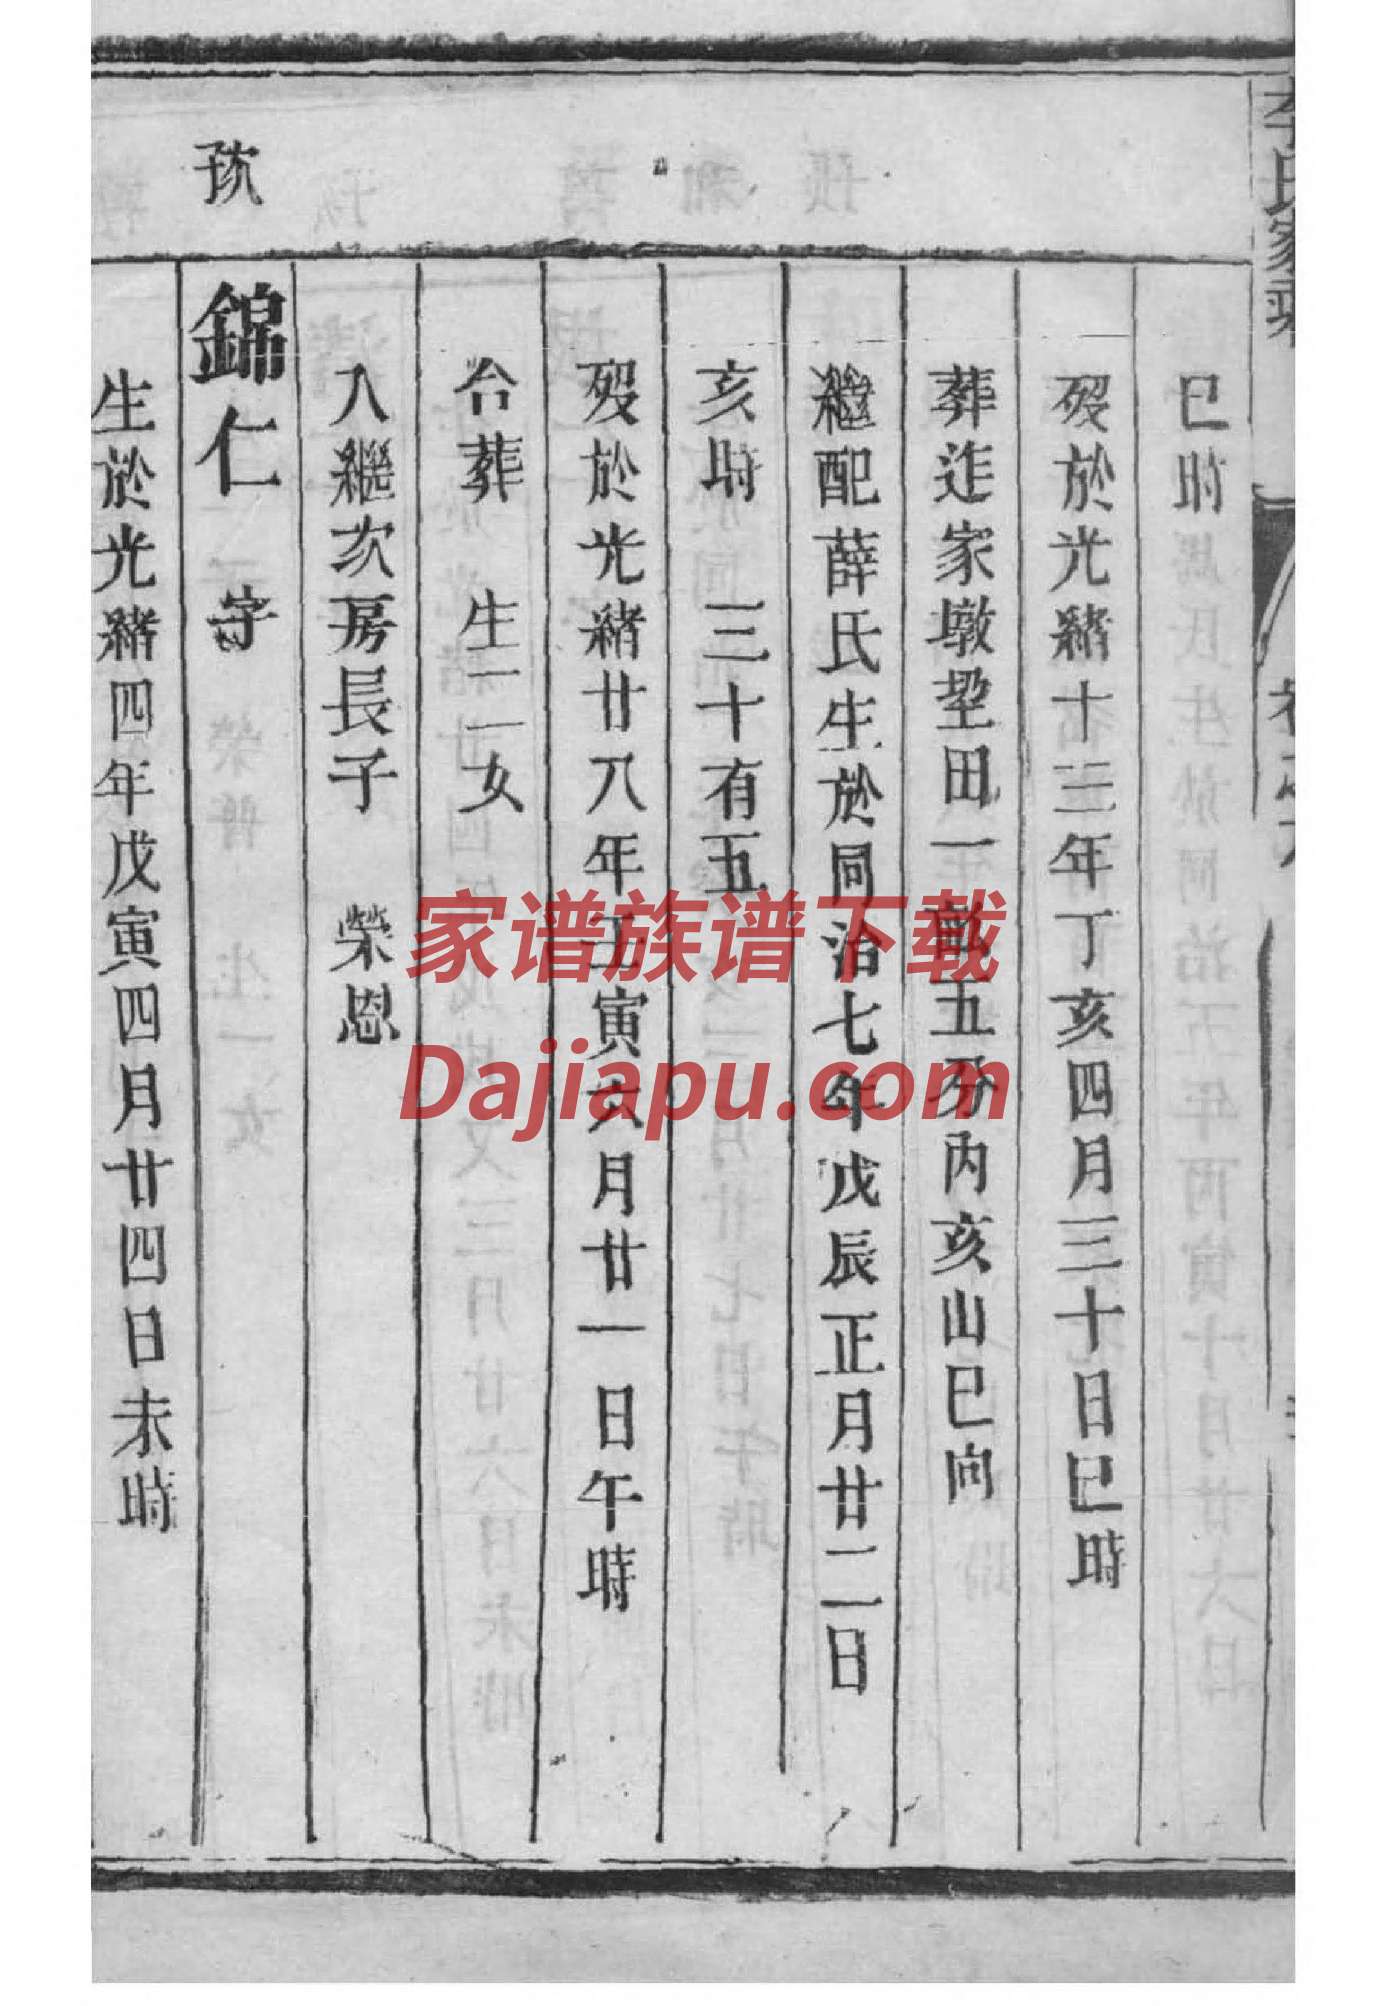 李氏家乘
巳時
歿於光緒十三年丁亥四月三十日巳時
葬迮家墩垩田一畝五分內亥山巳向
繼配薛氏生於同治七年戊辰正月廿二日
亥時 三十有五
歿於光緒廿八年壬寅六月廿一日午時
合葬 生二女
入繼次房長子 榮恩
孩
錦仁 字
生於光緒四年戊寅四月廿四日未時
家谱族谱下载
Dajiapu.com